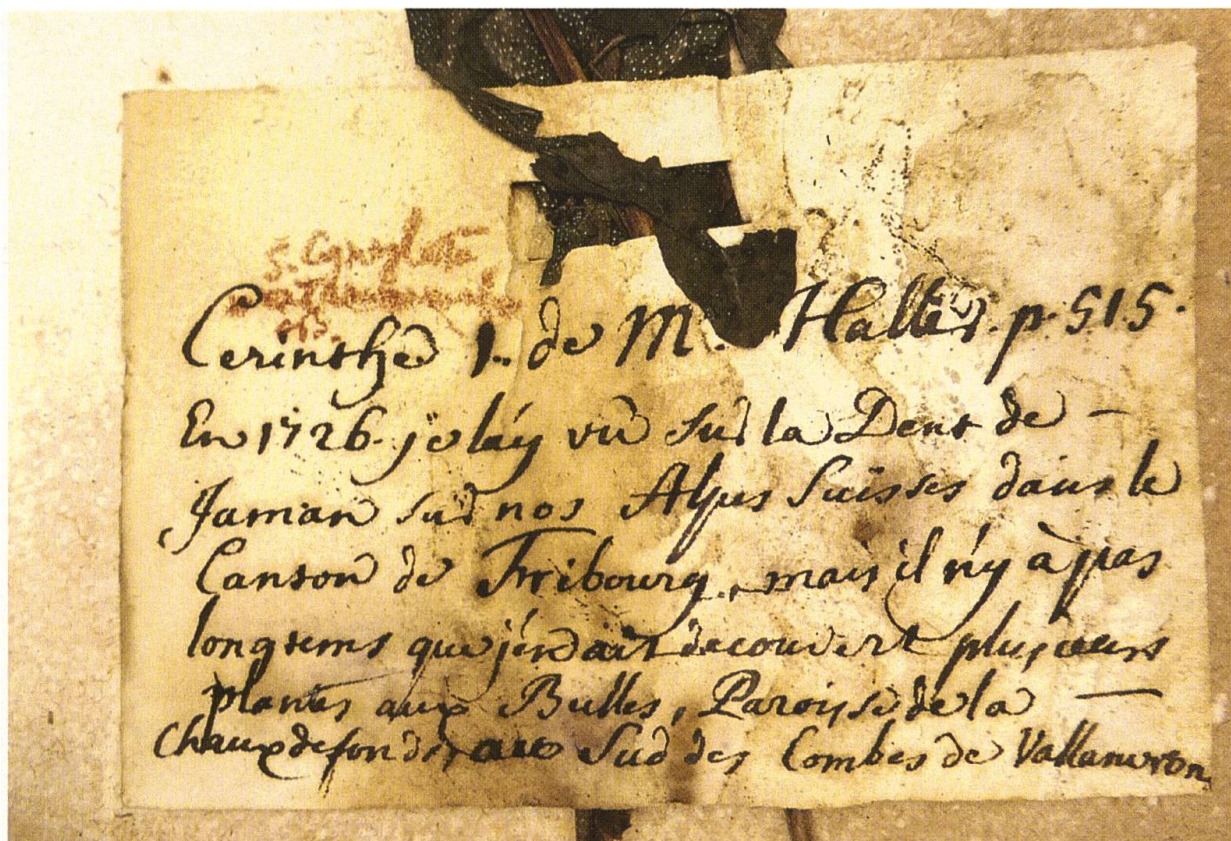 Cerinthe 1. de Mr. Haller. p. 515.
En 1726. je l'ay vû sur la Dent de —
Jaman sur nos Alpes Suisses dans le
Canton de Fribourg, mais il n'y à pas
longtems que j'en ait decouvert plusieurs
plantes aux Bulles, Paroisse de la —
Chaux de fonds, au Sud des Combes de Vallanvron